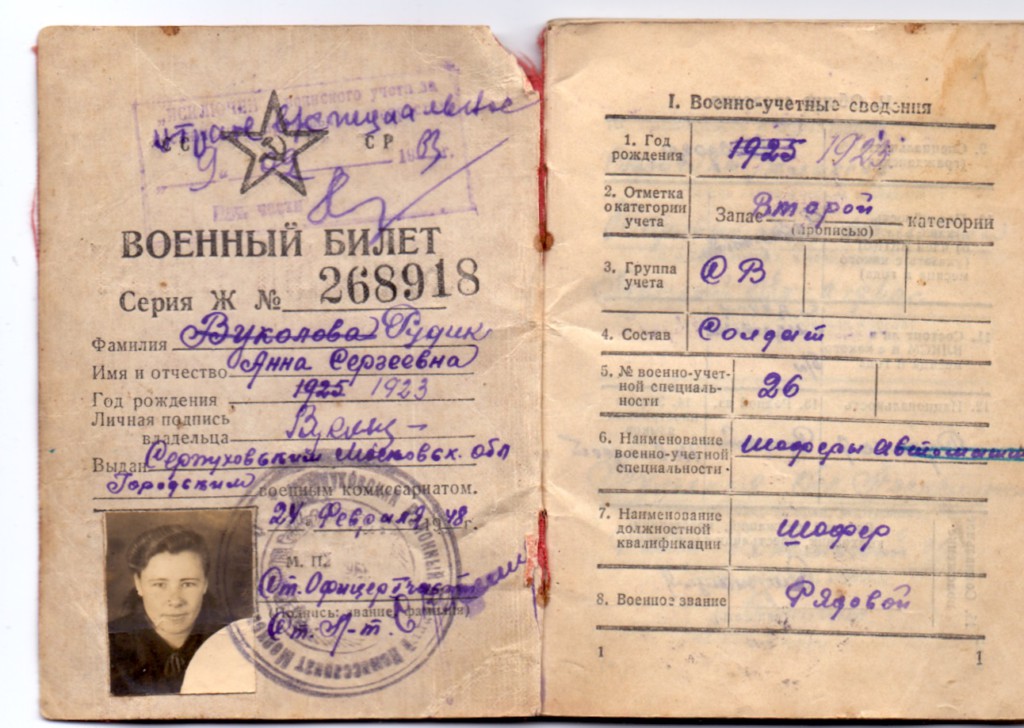 Исключен с воинского учета за
СС СР
9 1983 г.
ВОЕННЫЙ БИЛЕТ
Серия Ж № 268918
Фамилия Вуколова Рудик
Имя и отчество Анна Сергеевна
Год рождения 1925 1923
Личная подпись
владельца
Выдан Серпуховским Московск. обл
Городским военным комиссариатом.
24 Февраля 1948 г.
М. П.
Ст. Офицер
(Подпись, звание, фамилия)
Ст. Л-т.
I. Военно-учетные сведения
1. Год рождения 1925 1923
2. Отметка о категории учета Запас Второй категории
(прописью)
3. Группа учета СВ
4. Состав Солдат
5. № военно-учет-
ной специаль-
ности 26
6. Наименование
военно-учетной
специальности Шоферы
7. Наименование
должностной
квалификации Шофер
8. Военное звание Рядовой
1 1